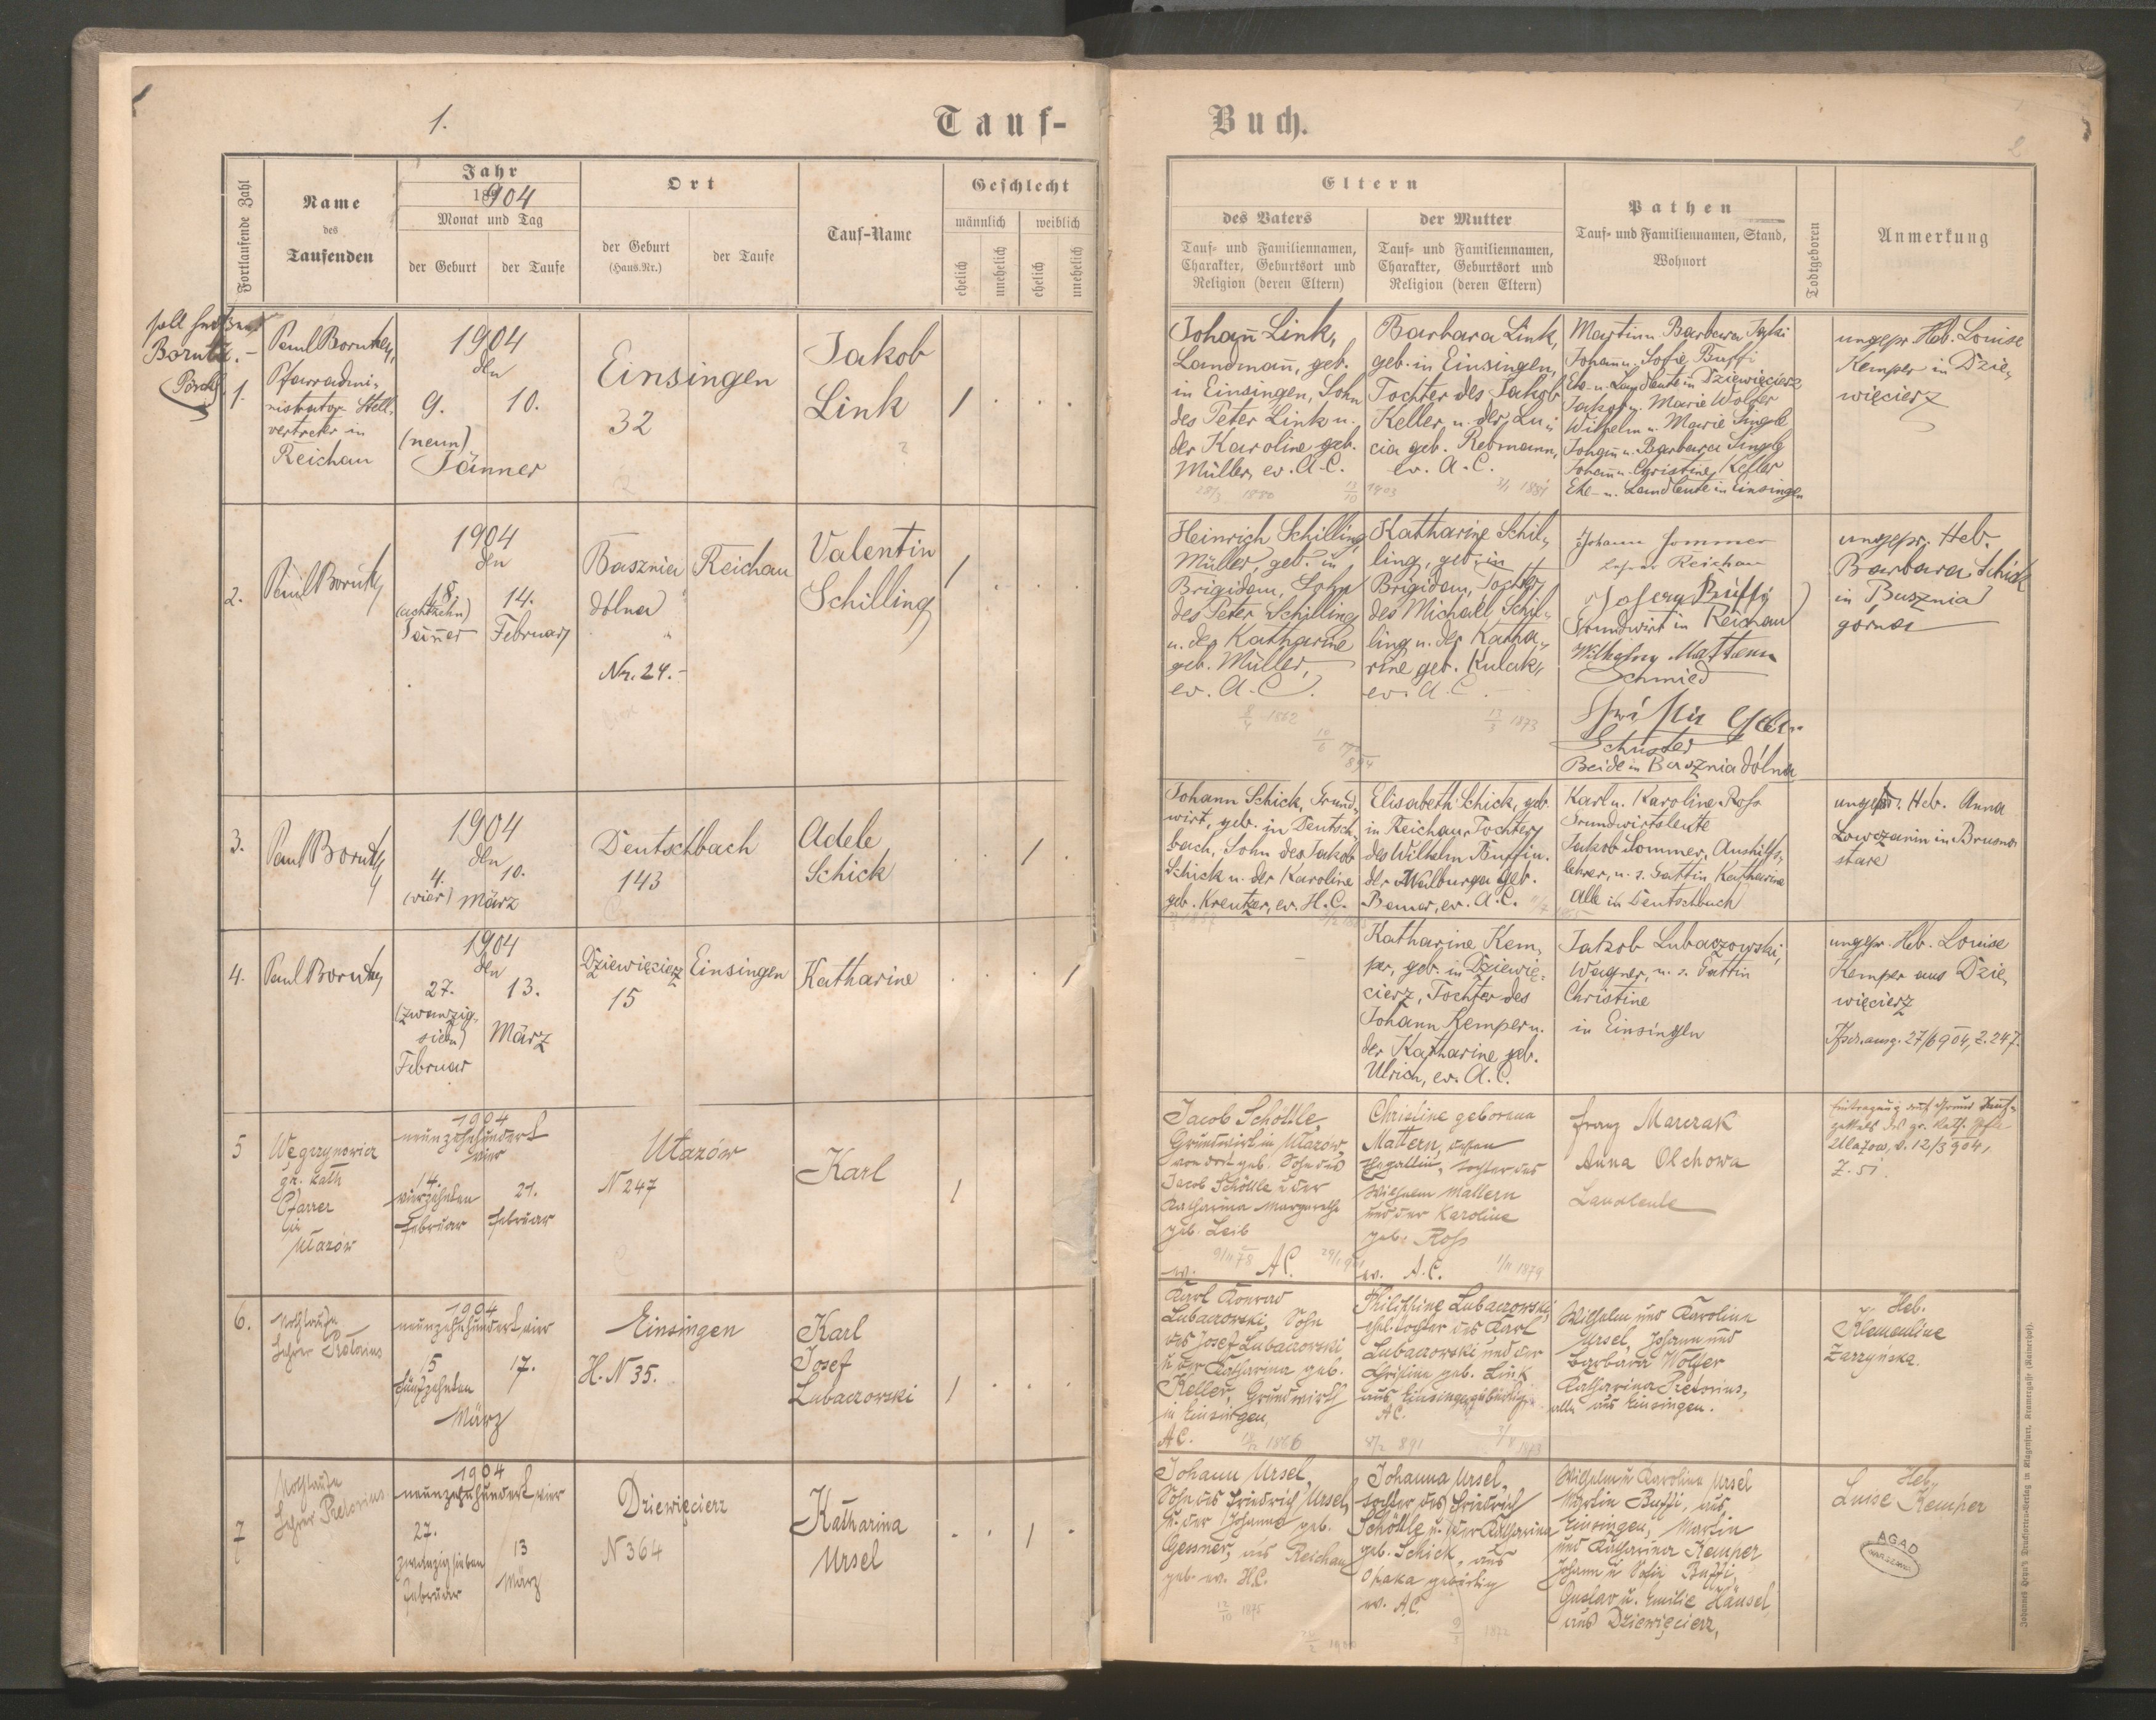 1.
Tauf-
Buch.
Fortlaufende Zahl
Name
des
Taufenden
Jahr
18 904
Monat und Tag
der Geburt
der Taufe
Ort
der Geburt
(Haus-Nr.)
der Taufe
Tauf-Name
Geschlecht
männlich
weiblich
ehelich
unehelich
ehelich
unehelich
Eltern
des Vaters
Tauf- und Familiennamen,
Charakter, Geburtsort und
Religion (deren Eltern)
der Mutter
Tauf- und Familiennamen,
Charakter, Geburtsort und
Religion (deren Eltern)
Pathen
Tauf- und Familiennamen, Stand,
Wohnort
Todtgeboren
Anmerkung
1.
Pfarradmi-
nistrator Stell-
vertreter in
Reichau
1904
den
9.
10.
(neun)
Jänner
Einsingen
32
Jakob
Link
1
Johann Link,
Landmann, geb.
in Einsingen, Sohn
des Peter Link u.
der Karoline geb.
Müller, ev. A. C.
28/3 1880
Barbara Link,
geb. in Einsingen,
Tochter des Jakob
Keller u. der Lu-
cia geb. Rebmann,
ev. A. C.
Johann u. Sofie Buffi
Ehe- u. Landleute in Dziewięcierz
Jakob u. Marie Wolfer
Wilhelm u. Marie
Johann u. Barbara
Johann u. Christine Keller
Ehe- u. Landleute in Einsingen
ungepr. Heb. Louise
Kemper in Dzie-
więcierz
2.
1904
den
18.
14.
(achtzehn)
Jänner
Februar
Basznia
dolna
Nr. 24.-
Reichau
Valentin
Schilling
1
Heinrich Schilling
Müller, geb. in
Brigidau, Sohn
des Peter Schilling
u. der Katharine
geb. Müller,
ev. A. C.
8/4 1862
Katharine Schil-
ling, geb. in
Brigidau, Tochter
des Michael Schil-
ling u. der Katha-
rine geb. Kulak,
ev. A. C.
13/3 1873
Johann Sommer
Lehrer Reichau
Grundwirt in Reichau
Wilhelm Mattern
Schmied
Schuster
Beide in Basznia dolna
ungepr. Heb.
Barbara Schick
in Basznia
górna
3.
1904
den
4.
10.
(vier) März
Deutschbach
143
Adele
Schick
1
Johann Schick, Grund-
wirt, geb. in Deutsch-
bach, Sohn des Jakob
Schick u. der Karoline
geb. Kreutzer, ev. H. C.
Elisabeth Schick, geb.
in Reichau, Tochter
des Wilhelm Buffi u.
der Walburga geb.
ev. A. C.
Karl u. Karoline Roß
Grundwirtsleute
Jakob Sommer, Aushilfs-
lehrer, u. s. Gattin Katharine
Alle in Deutschbach
ungepr. Heb. Anna
Lowczanin in Brusno
stare
4.
1904
den
27.
13.
(zwanzig-
sieben)
März
Februar
Dziewięcierz
15
Einsingen
Katharine
1
Katharine Kem-
per, geb. in Dziewię-
cierz, Tochter des
Johann Kemper u.
der Katharine geb.
Ulrich, ev. A. C.
Jakob Lubaczowski,
Wagner, u. s. Gattin
Christine
in Einsingen
ungepr. Heb. Louise
Kemper aus Dzie-
więcierz
5
Węgrzynowicz
gr. kath
Pfarrer
in
Ułazów
1904
neunzehnhundert
vier
14.
21.
vierzehnten
Februar
Februar
Ułazów
N 247
Karl
1
Jacob Schöttle,
Grundwirt in Ułazów,
von dort geb. Sohn des
Jacob Schöttle u. der
Katharina Margarethe
geb. Leib
ev. A C.
Christine geborene
Mattern, dessen
Ehegattin, Tochter des
Wilhelm Mattern
und der Karoline
geb. Roß
ev. A. C.
1/11 1879
Franz Marczak
Anna Olchowa
Landleute
Ułazow, v. 12/3 904,
Z. 51
6.
Nothtaufe
Lehrer Pretorius
1904
neunzehnhundert vier
15
17.
fünfzehnten
März
Einsingen
H. N 35.
Karl
Josef
Lubaczowski
1
Karl Konrad
Lubaczowski, Sohn
des Josef Lubaczowski
u. der Katharina geb.
Keller, Grundwirth
in Einsingen,
A C.
Philippine Lubaczowski,
ehel. Tochter des Karl
Lubaczowski und der
Christine geb. Link
aus Einsingen gebürtig
A C.
Wilhelm und Karoline
Ursel, Johann und
Barbara Wolfer
Katharina Pretorius,
alle aus Einsingen.
Heb.
Klementine
Zarzyńska.
7
Nothtaufe
Lehrer Pretorius
1904
neunzehnhundert vier
27.
13
zwanzigsieben
Februar
März
Dziewięcierz
N 364
Katharina
Ursel
1
Johann Ursel,
Sohn des Friedrich Ursel,
u. der Johanna geb.
Gessner, aus Reichau
geb. ev. H.C.
12/10 1875
Johanna Ursel,
Tochter des Friedrich
Schöttle u. der Katharina
geb. Schick, aus
Opaka gebürtig
ev. A.C.
Wilhelm u. Karoline Ursel
Martin Buffi, aus
Einsingen, Martin
und Katharina Kemper
Johann u. Sofie Buffi,
Gustav u. Emilie Hänsel,
aus Dziewięcierz,
Heb.
Luise Kemper
AGAD
WARSZAWA